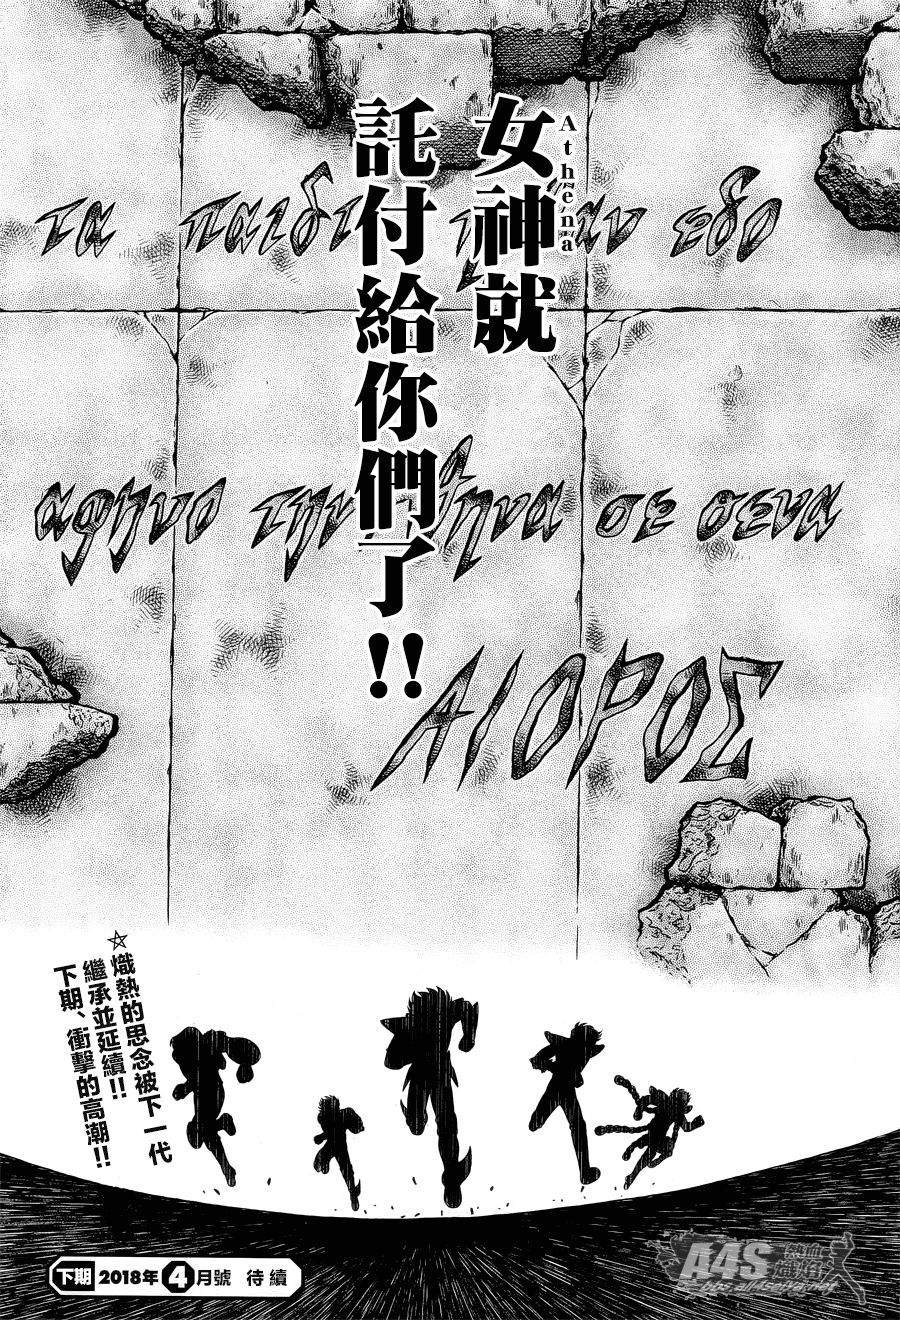 女神就
Athena
託付給你們了!!
τα παιδι
εδο
αφηνο την
θηνα σε σενα
ΑΙΟΡΟΣ
☆熾熱的思念被下一代
繼承並延續!!
下期、衝擊的高潮!!
下期 2018年4月號 待續
A4S
熱血